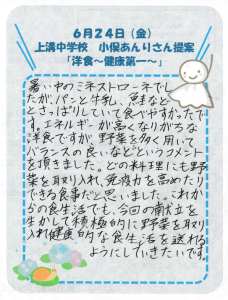 6月24日（金）
上溝中学校　小俣あんりさん提案
「洋食～健康第一～」
暑い中のミネストローネでし
たが、パンと牛乳、鮭など
とさっぱりしていて食べやすかったで
す。エネルギーが高くなりがちな
洋食ですが、野菜を多く用いて
バランスの良い、などというコメント
を頂きました。どの料理にも野
菜を取り入れ、免疫力を高めたり
できる食事だと思いました。これか
らの食生活でも、今回の献立を
生かして積極的に野菜を取り
入れ健康的な食生活を送れる
ようにしていきたいです。